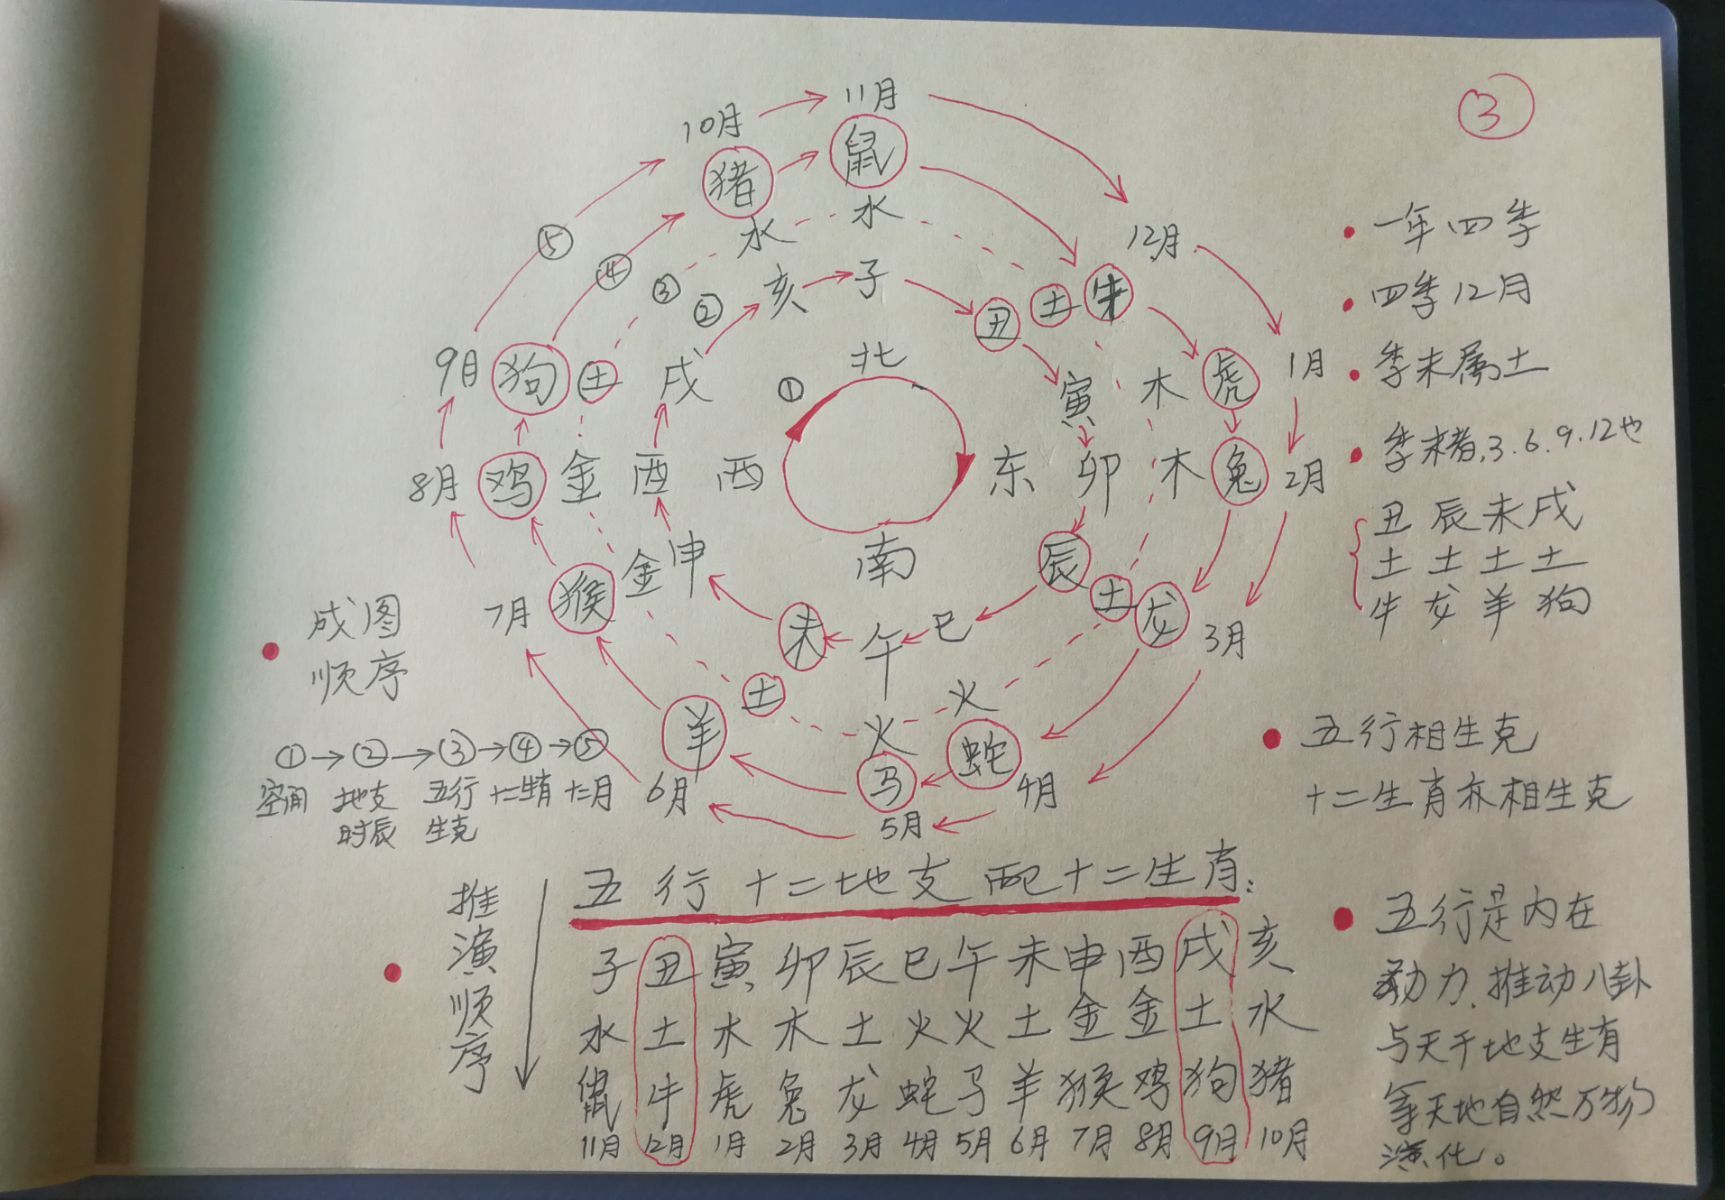 ③
10月 11月
猪 鼠
水 水
12月
⑤ ④ ③ ②
亥 子
丑 土 牛
9月 狗 土 戌 ① 北 寅 木 虎 1月
8月 鸡 金 酉 西 东 卯 木 兔 2月
7月 猴 金 申 南 辰 土 龙 3月
未 午 巳
土 火 火
羊 马 蛇
6月 5月 4月
一年四季
四季12月
季末属土
季末者,3.6.9.12也
丑辰未戌
土土土土
牛龙羊狗
成图
顺序
①→②→③→④→⑤
空间 地支 五行 十二生肖 十二月
时辰 生克
五行相生克
十二生肖亦相生克
推演顺序
五行十二地支配十二生肖:
子丑寅卯辰巳午未申酉戌亥
水土木木土火火土金金土水
鼠牛虎兔龙蛇马羊猴鸡狗猪
11月 12月 1月 2月 3月 4月 5月 6月 7月 8月 9月 10月
五行是内在
动力,推动八卦
与天干地支生肖
等天地自然万物
演化。